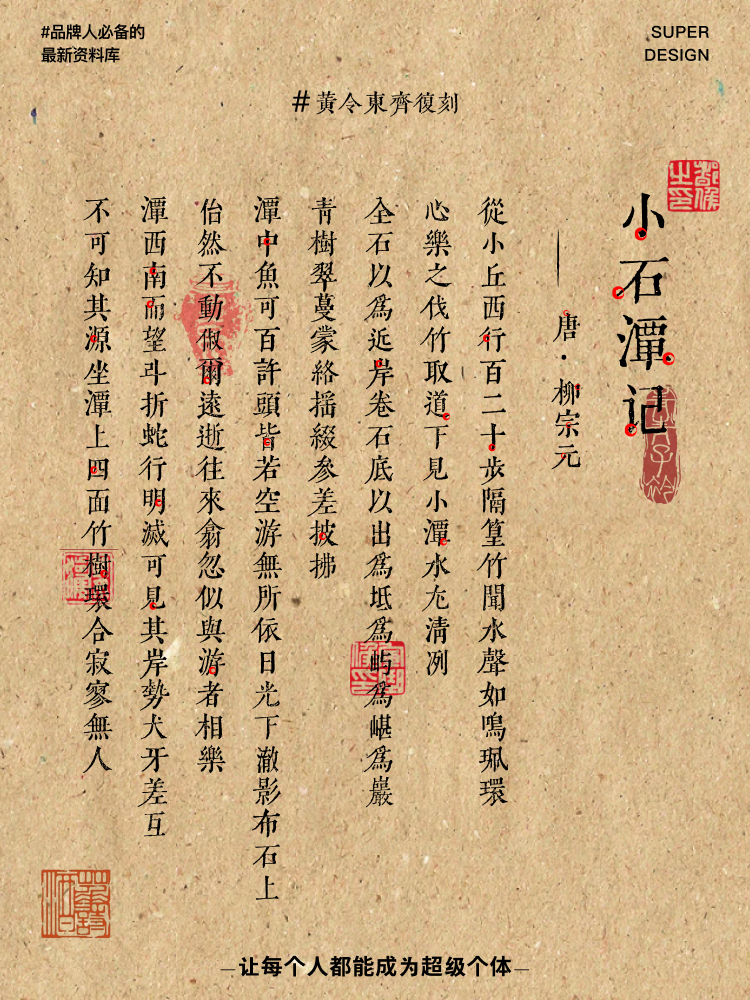 #品牌人必备的
最新资料库
SUPER
DESIGN
#黄令東齊復刻
小石潭记
唐·柳宗元
從小丘西行百二十步隔篁竹聞水聲如鳴珮環
心樂之伐竹取道下見小潭水尢清冽
全石以爲近岸卷石底以出爲坻爲屿爲嵁爲巖
青樹翠蔓蒙絡揺綴參差披拂
潭中魚可百許頭皆若空游無所依日光下澈影布石上
佁然不動俶爾遠逝往來翕忽似與游者相樂
潭西南而望斗折蛇行明滅可見其岸勢犬牙差互
不可知其源坐潭上四面竹樹環合寂寥無人
—让每个人都能成为超级个体—